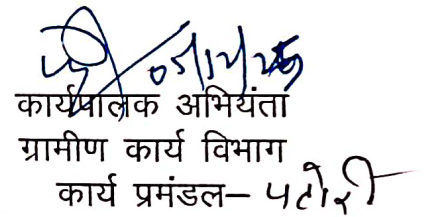 05/12/25
कार्यपालक अभियंता
ग्रामीण कार्य विभाग
कार्य प्रमंडल– पटोरी